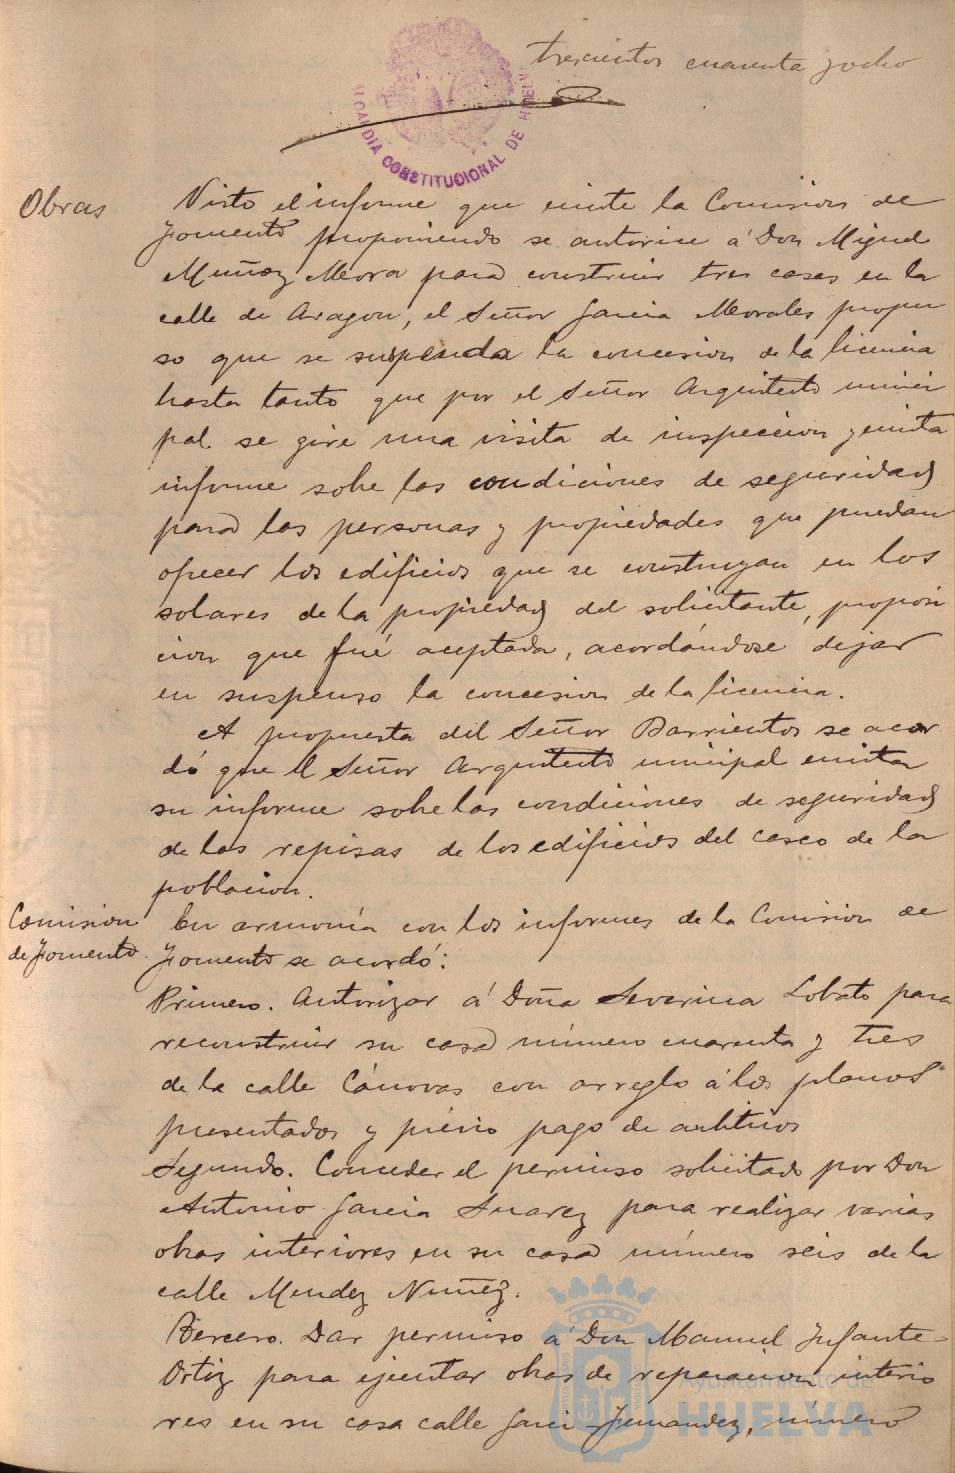 trescientos cuarenta y ocho
ALCALDIA CONSTITUCIONAL DE HUELVA
Obras
Visto el informe que emite la Comision de
Fomento proponiendo se autorice á Don Miguel
Muñoz Mora para construir tres casas en la
calle de Aragon, el Señor Garcia Morales propu
so que se suspenda la concesion de la licencia
hasta tanto que por el Señor Arquitecto munici
pal. se gire una visita de inspeccion y emita
informe sobre las condiciones de seguridad
para las personas y propiedades que puedan
ofrecer los edificios que se construyan en los
solares de la propiedad del solicitante, proposi
cion que fué aceptada, acordándose dejar
en suspenso la concesion de la licencia.
A propuesta del Señor Barrientos se acor
dó que el Señor Arquitecto municipal emita
su informe sobre las condiciones de seguridad
de las repisas de los edificios del casco de la
poblacion.
Comision
de Fomento.
En armonía con los informes de la Comision de
Fomento se acordó:
Primero. Autorizar á Doña Severina Lobato para
reconstruir su casa número cuarenta y tres
de la calle Cánovas con arreglo á los planos
presentados y prévio pago de arbitrios
Segundo. Conceder el permiso solicitado por Don
Antonio Garcia Suarez para realizar varias
obras interiores en su casa número seis de la
calle Mendez Nuñez.
Tercero. Dar permiso á Don Manuel Infante
Ortiz para ejecutar obras de reparacion interio
res en su casa calle Garci-Fernandez, número
Ayuntamiento de
HUELVA